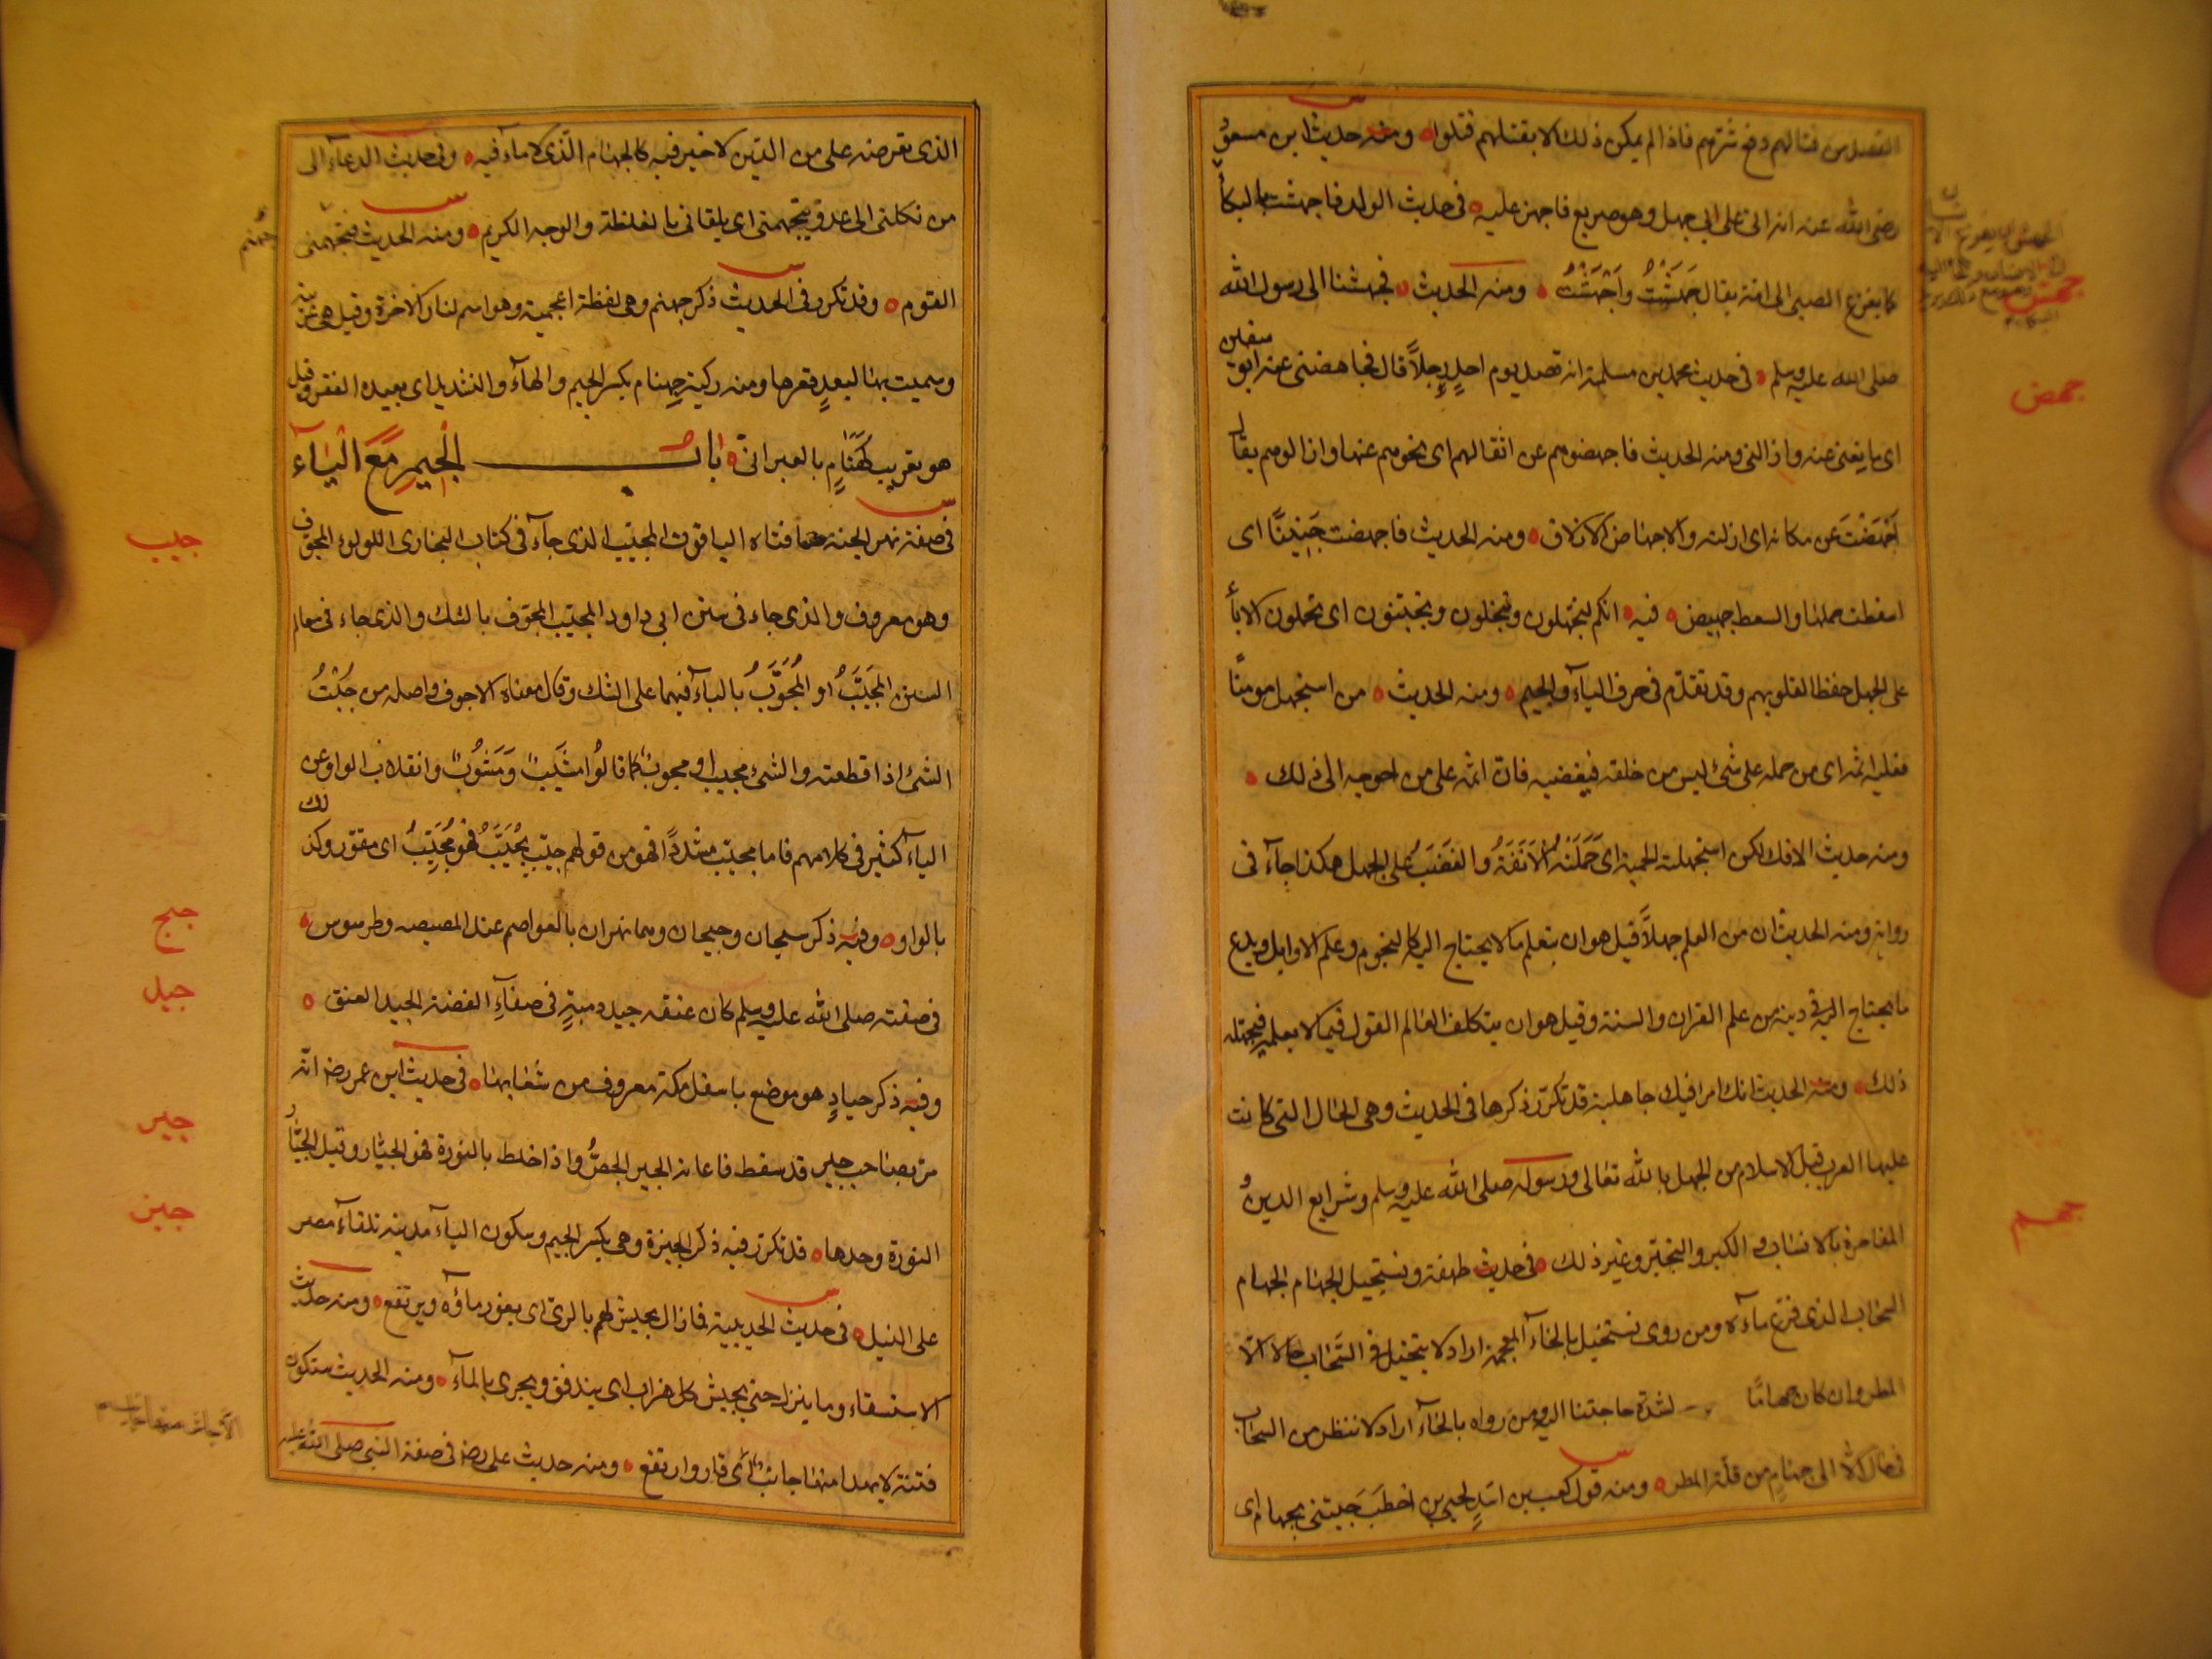 القصد من قتالهم دفع شرهم فاذا لم يمكن ذلك الا بقتلهم قتلوا ومنه حديث ابن مسعود
رضى الله عنه انه اتى على ابي جهل وهو صريع فاجهز عليه في حديث المولد فاجهشت بالبكاء
كما يفزع الصبى الى امه يقال جَهَشْتُ وَاَجْهَشْتُ ومنه الحديث فجهشنا الى رسول الله
صلى الله عليه وسلم في حديث محمد بن مسلمة انه قصد يوم احدٍ رجلاً قال فجاهضنى عنه ابو سفين
اى مانعنى عنه وازالنى ومنه الحديث فاجهضوهم عن اثقالهم اى نحوهم عنها وازالوهم يقال
اَجْهَضْتَ عن مكانه اى ازلته والاجهاض الازلاق ومنه الحديث فاجهضت جَنِينًا اى
اسقطت حملها والسقط جهيض فيه انكم لتجهلون وتبخلون وتجبنون اى تحملون الاباء
على الجهل حفظا لقلوبهم وقد تقدم في حرف الباء والجيم ومنه الحديث من استجهل مومنًا
فعليه اثمه اى من حمله على شئ ليس من خلقه فيغضبه فان اثمه على من احوجه الى ذلك
ومنه حديث الافك لكن استجهلته الحمية اى حَمَلَتْهُ الْاَنَفَةُ والغَضَبُ على الجهل هكذا جاء في
رواية ومنه الحديث ان من العلم جهلاً قيل هو ان يتعلم ما لا يحتاج اليه كالنجوم وعلم الاوايل ويدع
ما يحتاج اليه في دينه من علم القران والسنة وقيل هو ان يتكلف العالم القول فيما لا يعلمه فيجهله
ذلك ومنه الحديث انك امرا فيك جاهلية قد تكرر ذكرها في الحديث وهى الحال التى كانت
عليها العرب قبل الاسلام من الجهل بالله تعالى ورسوله صلى الله عليه وسلم وشرايع الدين و
المفاخرة بالانساب والكبر والتجبر وغير ذلك في حديث طهفة ونستحيل الجهام الجهام
السحاب الذى فرغ ماءه ومن روى نستخيل بالخاء المعجمة اراد لا نتخيل في السحاب حالا الا
المطر وان كان جهامًا لشدة حاجتنا اليه ومن رواه بالحاء اراد لا ننظر من السحاب
في حال الا الى جهام من قلة المطر ومنه قول كعب بن اسد لحيي بن اخطب جيتنى بجهام اى
جهش
جهض
جهم
الذى تعرضه على من الدين لا خير فيه كالجهام الذى لا ماء فيه وفى حديث الدعاء الى
من تكلنى الى عدو يتجهمنى اى يلقانى بالغلظة والوجه الكريه ومنه الحديث فتجهمنى
القوم وقد تكرر في الحديث ذكر جهنم وهى لفظة اعجمية وهو اسم لنار الاخرة وقيل هى عربية
وسميت بها لبعد قعرها ومنه ركية جِهنام بكسر الجيم والهاء والتشديد اى بعيدة القعر وقيل
هو تعريب كَهنّام بالعبرانى بابــ الْجِيمِ مَعَ الْيَاء
في صفة نهر الجنة حافتاه الياقوت المجيّب الذى جاء في كتاب البخارى اللولوء المجوف
وهو معروف والذى جاء في سنن ابي داود المجيّب المجوّف بالشك والذى جاء في معالم
السنن المُجَيَّبُ او المُجَوَّبُ بالباء فيهما على الشك وقال معناه الاجوف واصله من جُبْتُ
الشئ اذا قطعته والشئ مجيب او مجوب كما قالوا مشيب وَمَشُوب وانقلاب الواو عن
الياء كثير في كلامهم فاما مجيّب مشددًا فهو من قولهم جيّب يُجَيِّبُ فهو مُجَيَّبُ اى مقوّر وكذلك
بالواو وفيه ذكر سيحان وجيحان وهما نهران بالعواصم عند المصيصه وطرسوس
في صفته صلى الله عليه وسلم كان عنقه جيد دميةٍ في صفاءِ الفضة الجيد العنق
وفيه ذكر جياد هو موضع باسفل مكة معروف من شعابها في حديث ابن عمر رضه انه
مرّ بصاحب جير قد سقط فاعانه الجير الجصُّ واذا خلط بالنورة فهو الجيار وقيل الجيّار
النورة وحدها قد تكرر فيه ذكر الجيزة وهى بكسر الجيم وسكون الياء مدينة تلقاء مصر
على النيل في حديث الحديبية فما زال يجيش لهم بالرى اى يفور ماؤه ويرتفع ومنه حديث
الاستسقاء وما ينزل حتى يجيش كل ميزاب اى يتدفق ويجرى بالماء ومنه الحديث ستكون
فتنة لا يهدا منها جانب اى فار وارتفع ومنه حديث على رضه في صفة النبى صلى الله عليه
جهنم
جيب
جيح
جيد
جير
جيز